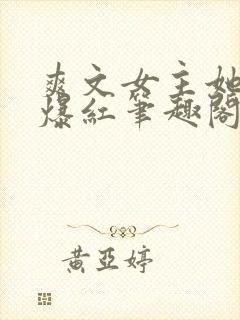 爽文女主她
爆紅筆趣閣
黃亞婷